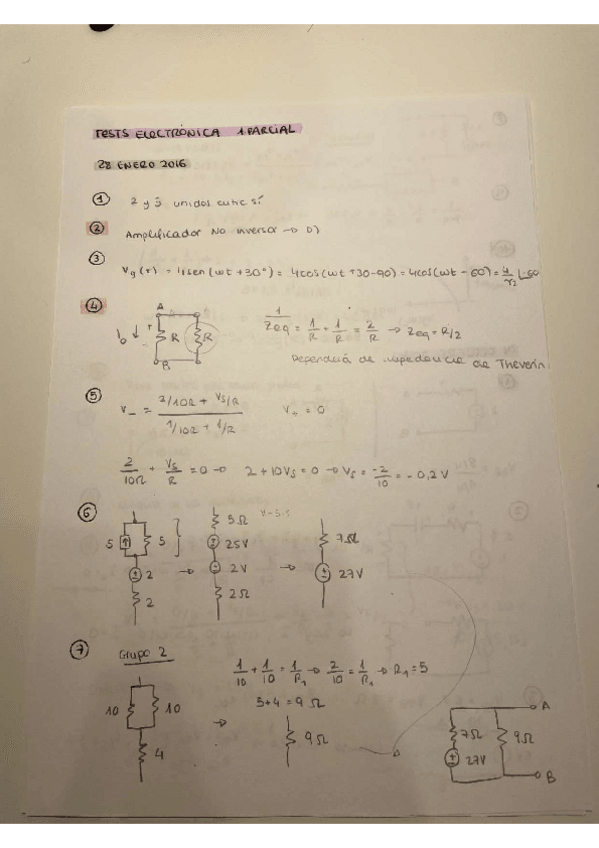 TESTS ELECTRÓNICA 1 PARCIAL
28 ENERO 2016
① 2 y 3 unidos entre sí
② Amplificador No inversor → D)
③ Vg(t) = 4 sen (wt + 30°) = 4cos(wt + 30 - 90) = 4cos(wt - 60) = 4/√2 |-60
④ A
Io ↓ + R R
B
1/Zeq = 1/R + 1/R = 2/R → Zeq = R/2
Dependerá de impedancia de Thevenin
⑤ V- = (2/10R + Vs/R) / (1/10R + 1/R) V+ = 0
2/10R + Vs/R = 0 → 2 + 10Vs = 0 → Vs = -2/10 = -0,2 V
⑥ 5 5 2 2 → 5Ω 25V 2V 2Ω → 7Ω 27V
⑦ Grupo 2
1/10 + 1/10 = 1/R1 → 2/10 = 1/R1 → R1 = 5
5+4 = 9 Ω
10 10 4 → 9Ω
7Ω 27V 9Ω A B